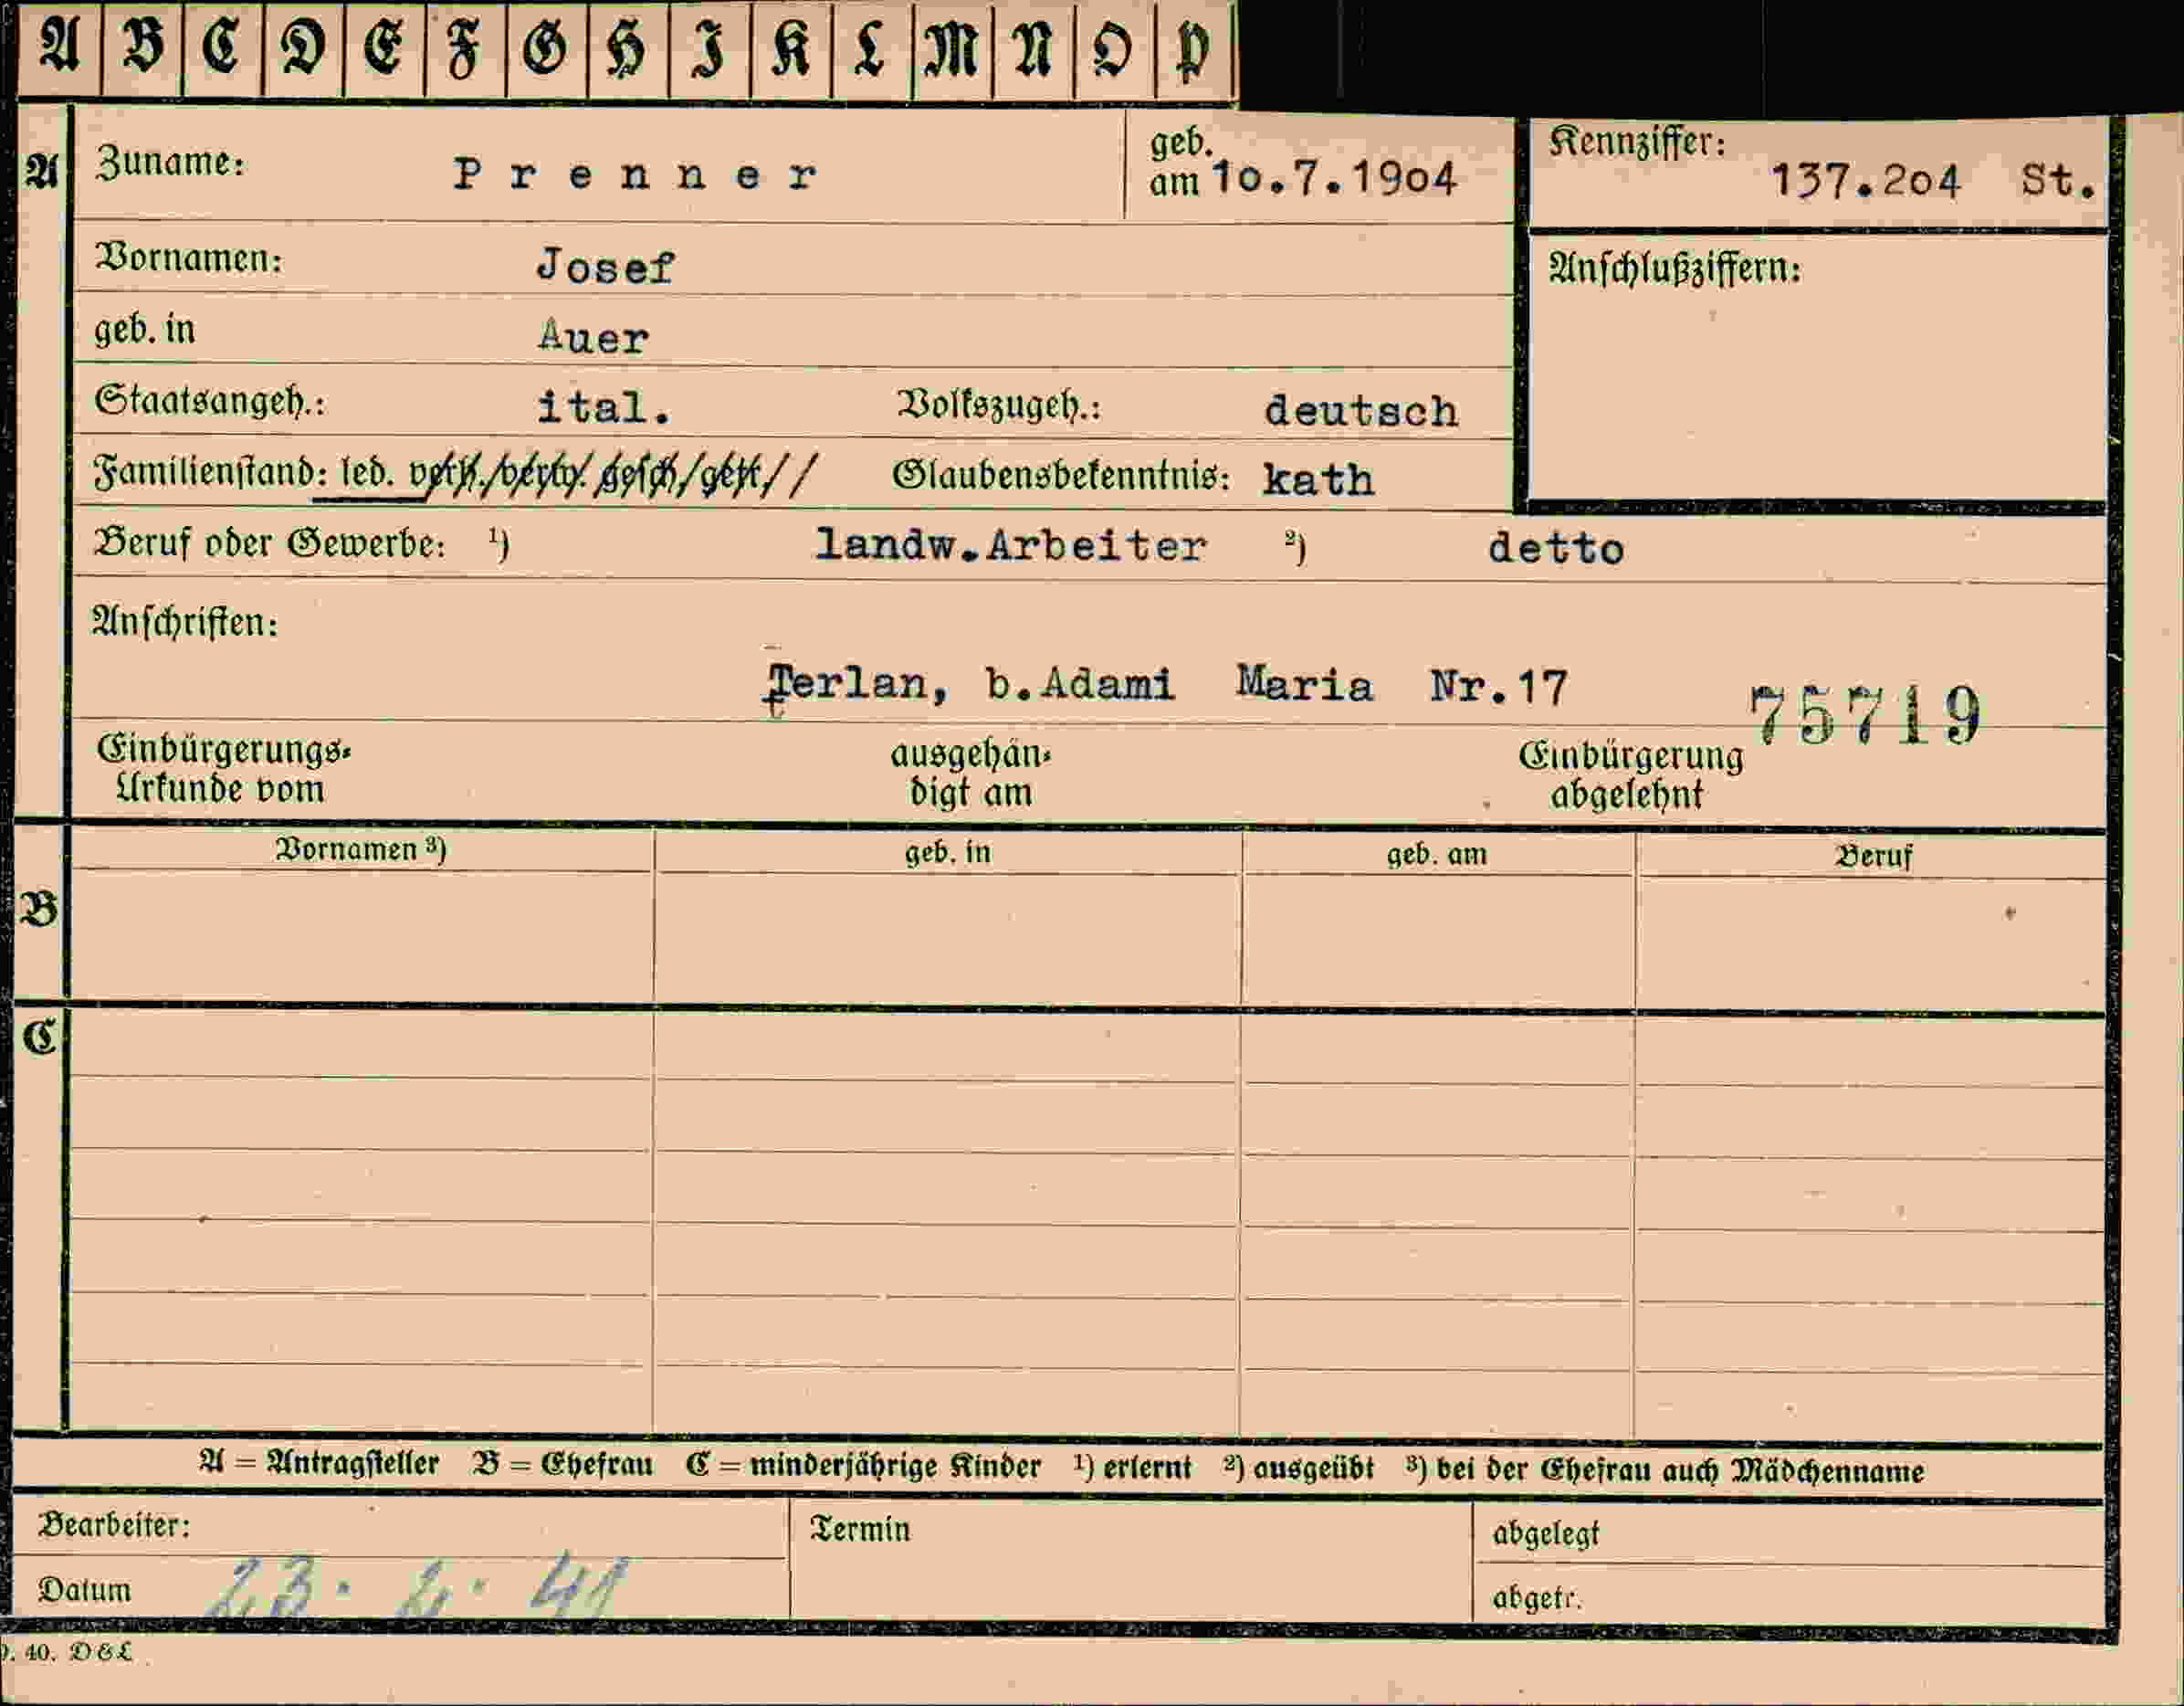 A B C D E F G H I K L M N O P
A Zuname: Prenner geb. am 1o.7.19o4 Kennziffer: 137.2o4 St.
Vornamen: Josef Anschlußziffern:
geb. in Auer
Staatsangeh.: ital. Volkszugeh.: deutsch
Familienstand: led. verh. verw. gesch. getr. Glaubensbekenntnis: kath
Beruf oder Gewerbe: ¹) landw.Arbeiter ²) detto
Anschriften:
Terlan, b.Adami Maria Nr.17
75719
Einbürgerungs-Urkunde vom ausgehändigt am Einbürgerung abgelehnt
Vornamen ³) geb. in geb. am Beruf
B
C
A = Antragsteller B = Ehefrau C = minderjährige Kinder ¹) erlernt ²) ausgeübt ³) bei der Ehefrau auch Mädchenname
Bearbeiter: Termin abgelegt
Datum 23. 41 abgetr.
40. D&L